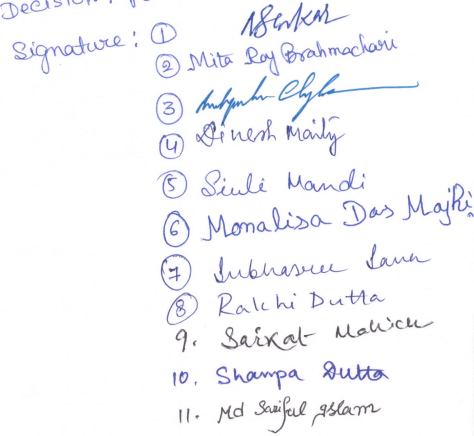 Decision:
Signature: ① NSarkar
② Mita Roy Brahmachari
③
④ Dinesh Maity
⑤ Siuli Mandi
⑥ Monalisa Das Majhi
⑦ Subhasree Jana
⑧ Rakhi Dutta
9. Saikat Mallick
10. Shampa Dutta
11. Md Sariful Islam